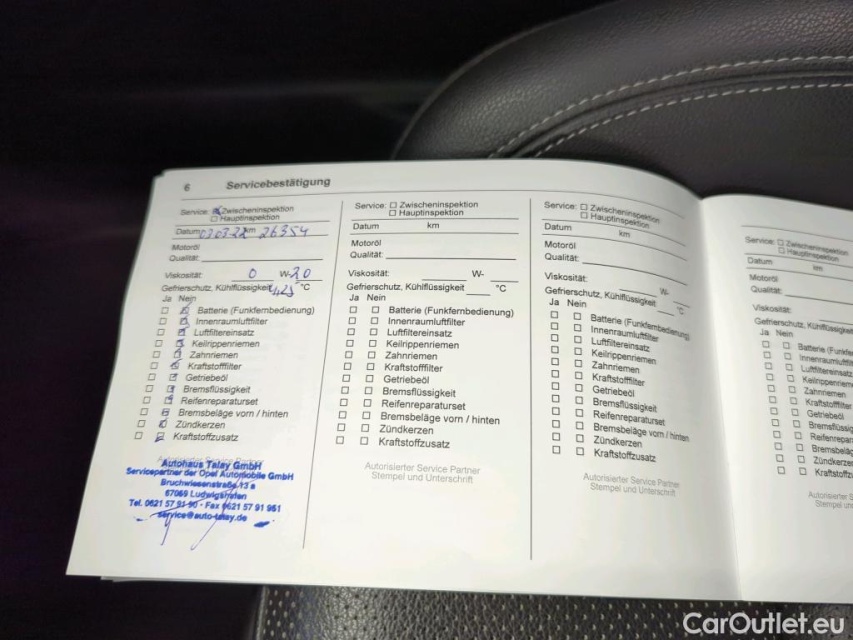 6 Servicebestätigung
Service: Zwischeninspektion
Hauptinspektion
Datum 03.22 km 26354
Motoröl
Qualität:
Viskosität: 0 W-20
Gefrierschutz, Kühlflüssigkeit °C
Ja Nein
Batterie (Funkfernbedienung)
Innenraumluftfilter
Luftfiltereinsatz
Keilrippenriemen
Zahnriemen
Kraftstofffilter
Getriebeöl
Bremsflüssigkeit
Reifenreparaturset
Bremsbeläge vorn / hinten
Zündkerzen
Kraftstoffzusatz
Autorisierter Service Partner
Autohaus Talay GmbH
Servicepartner der Opel Automobile GmbH
Bruchwiesenstraße 13 a
67069 Ludwigshafen
Tel. 0621 57 91 90 · Fax 0621 57 91 951
service@auto-talay.de
Service: Zwischeninspektion
Hauptinspektion
Datum km
Motoröl
Qualität:
Viskosität: W-
Gefrierschutz, Kühlflüssigkeit °C
Ja Nein
Batterie (Funkfernbedienung)
Innenraumluftfilter
Luftfiltereinsatz
Keilrippenriemen
Zahnriemen
Kraftstofffilter
Getriebeöl
Bremsflüssigkeit
Reifenreparaturset
Bremsbeläge vorn / hinten
Zündkerzen
Kraftstoffzusatz
Autorisierter Service Partner
Stempel und Unterschrift
Service: Zwischeninspektion
Hauptinspektion
Datum km
Motoröl
Qualität:
Viskosität: W-
Gefrierschutz, Kühlflüssigkeit °C
Ja Nein
Batterie (Funkfernbedienung)
Innenraumluftfilter
Luftfiltereinsatz
Keilrippenriemen
Zahnriemen
Kraftstofffilter
Getriebeöl
Bremsflüssigkeit
Reifenreparaturset
Bremsbeläge vorn / hinten
Zündkerzen
Kraftstoffzusatz
Autorisierter Service Partner
Stempel und Unterschrift
Service: Zwischeninspektion
Hauptinspektion
Datum km
Motoröl
Qualität:
Viskosität:
Gefrierschutz, Kühlflüssigkeit
Ja Nein
Batterie (Funkfernb
Innenraumluftfilter
Luftfiltereinsatz
Keilrippenrieme
Zahnriemen
Kraftstofffilter
Getriebeöl
Bremsflüssig
Reifenrepara
Bremsbeläg
Zündkerzen
Kraftstoffzu
Autorisierter S
Stempel un
CarOutlet.eu